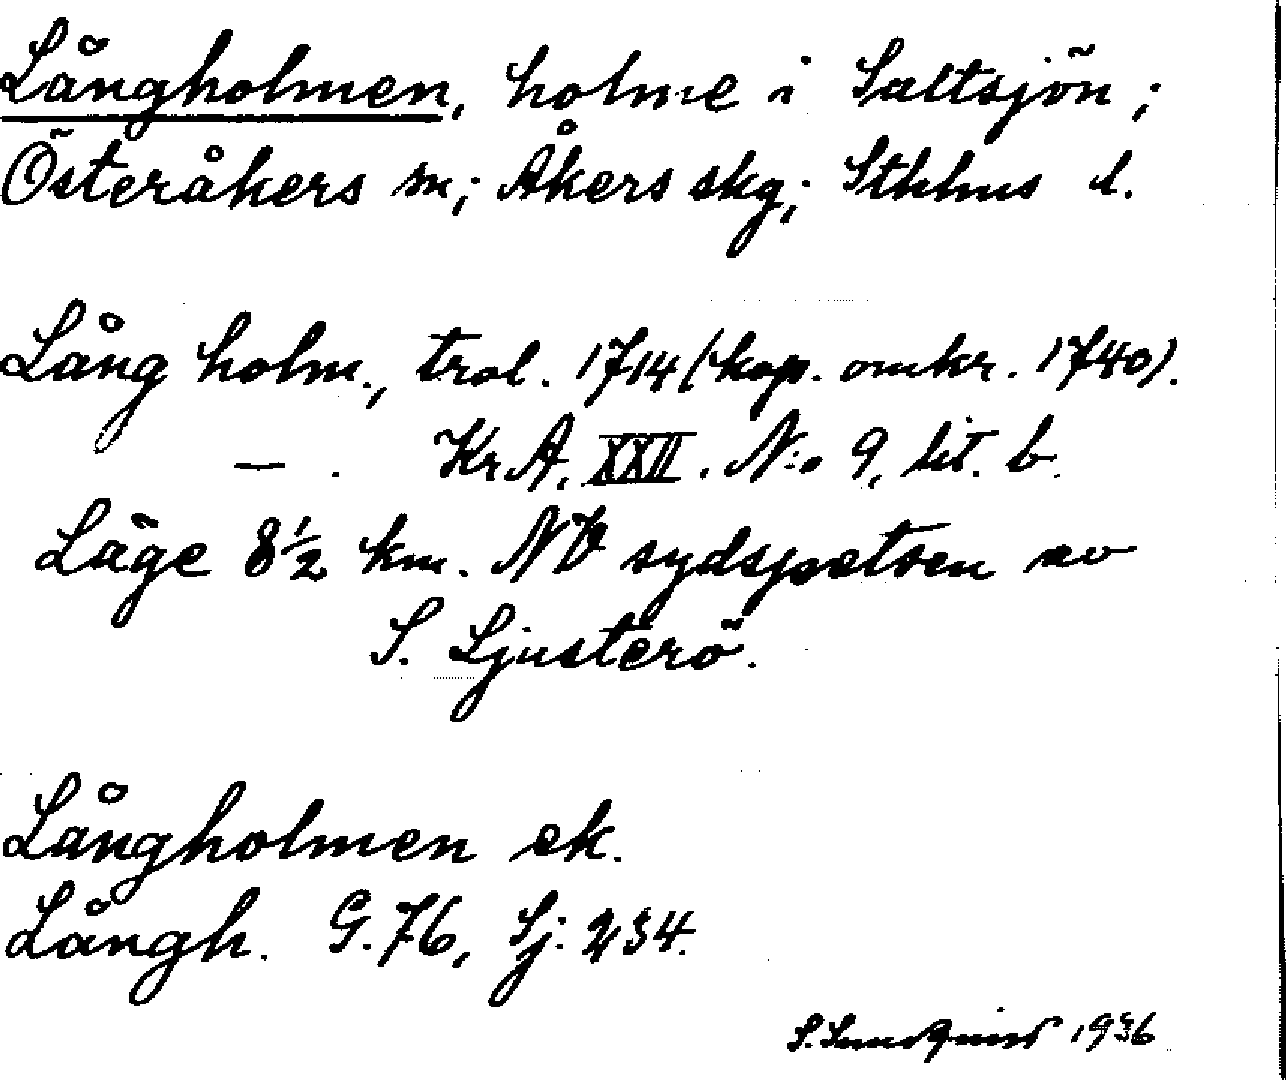 Långholmen, holme i Saltsjön;
Österåkers sn; Åkers skg; Sthlms l.
Lång holm., trol. 1714 (kop. omkr. 1740).
— . Kr.A. XXII. N:o 9, lit. b.
Läge 8½ km. NV sydspetsen av
S. Ljusterö.
Långholmen ek.
Långh. G.76, Sj: 234.
S. Sundquist 1936